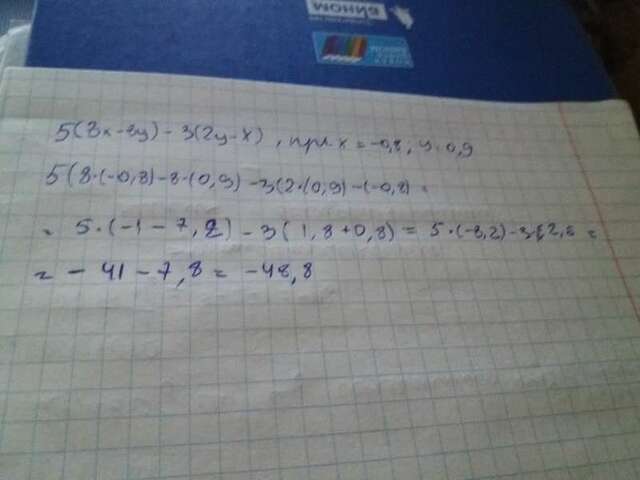 БИНОМ
5(8x-8y)-3(2y-x), при x=-0,8, y=0,9
5(8·(-0,8)-8·(0,9)-3(2·(0,9)-(-0,8)=
= 5·(-1-7,2)-3(1,8+0,8)= 5·(-8,2)-3·2,6=
= -41-7,8= -48,8